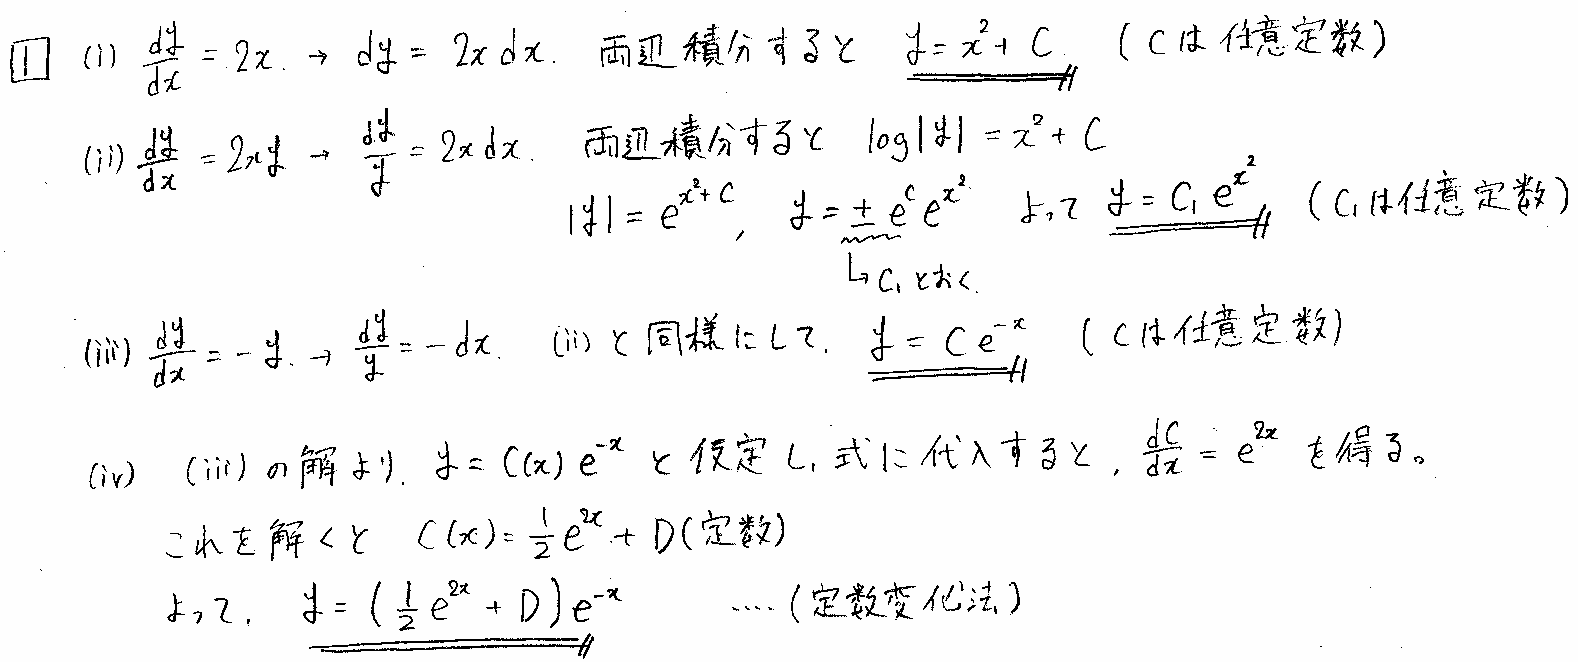 1 (i) dy/dx = 2x. → dy = 2x dx. 両辺積分すると y = x² + C. (Cは任意定数)
(ii) dy/dx = 2xy → dy/y = 2x dx. 両辺積分すると log|y| = x² + C
|y| = e^{x²+C}, y = ± e^C e^{x²} よって y = C₁ e^{x²} (C₁は任意定数)
↳ C₁ とおく.
(iii) dy/dx = −y. → dy/y = −dx. (ii)と同様にして, y = C e^{−x} (Cは任意定数)
(iv) (iii)の解より, y = C(x) e^{−x} と仮定し, 式に代入すると, dC/dx = e^{2x} を得る。
これを解くと C(x) = 1/2 e^{2x} + D(定数)
よって, y = (1/2 e^{2x} + D) e^{−x} ....(定数変化法)